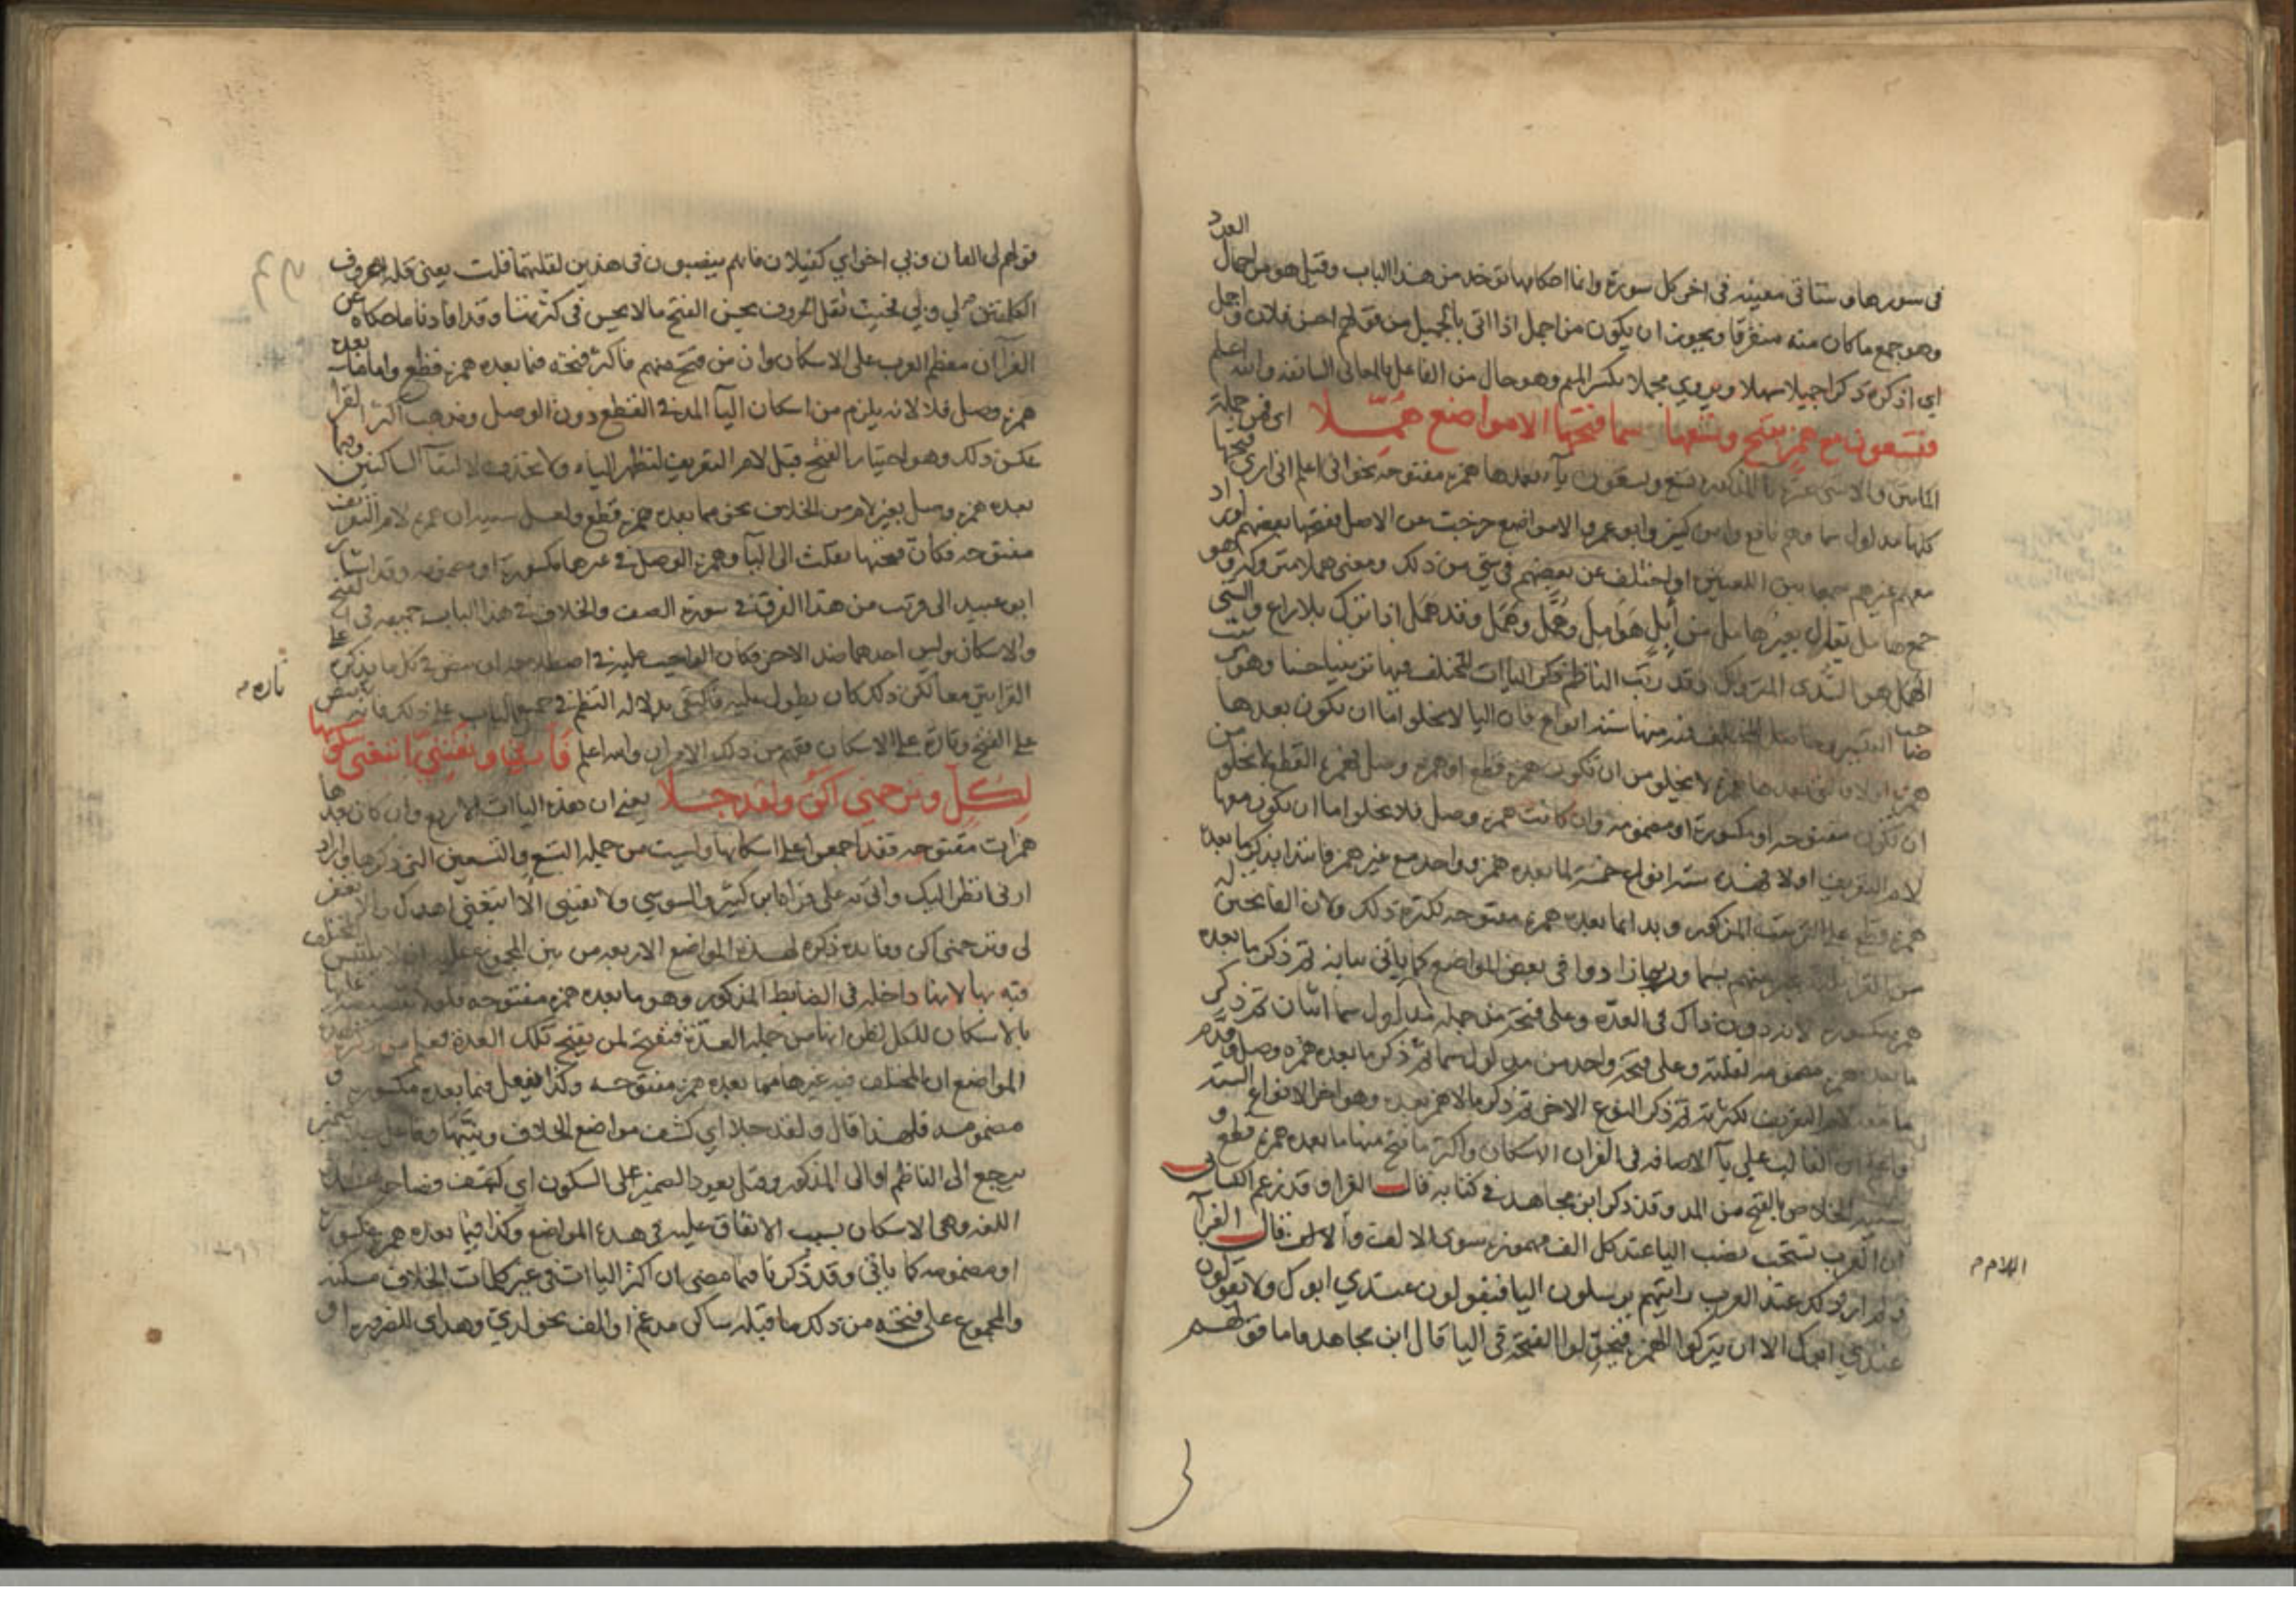 في سورها وستاتي معينه في اخر كل سورة وانما احكامها توخذ من هذا الباب وقيل هو من اجمال العدد
وهو جمع ما كان منه متفرقا ويجوز ان يكون من اجمل اذا اتى بالجميل من قولهم احسن فلان واجمل
اي اذكره ذكرا جميلا سهلا ويروي مجملا بكسر الميم وهو حال من الفاعل بالمعاني السابقه والله اعلم
فتسعون مع همز بفتح وتسعها سما فتحها الا مواضع همّلا اي فمن جملة
المايتين والاثنتي عشرة يا المذكوره تسع وتسعون يآء بعدها همزه مفتوحه نحو اني اعلم اني ارى فتحها
كلها مدلول سما وهم نافع وابن كثير وابو عمرو الا مواضع خرجت عن الاصل ففتحها بعضهم او زاد
معهم غيرهم او اختلف عن بعضهم في شي من ذلك ومعنى هملا متروكة وهو
جمع هامل يقال بعير هامل من إبل هَوَامِل وهُمَّل وهَمَل وقد همل اذا ترك بلا راع والشي
المهمل هو السدى المتروك وقد رتب الناظم ذكر الياات المختلف فيها ترتيبا حسنا وهو
همزه اولا فالتي بعدها همزة لا يخلو من ان تكون همزة قطع او همزة وصل فهمزة القطع لا يخلو من
ان تكون مفتوحه او مكسورة او مضمومه وان كانت همزه وصل فلا يخلو اما ان يكون معها
لام التعريف او لا فهذه ستة انواع خمسة لما بعده همز وواحد مع غير همز فابتدا بذكر ما بعده
همزة قطع على الترتيب المذكور وبدا بما بعده همزة مفتوحه لكثرة ذلك ولان الفاتحين له
من القرا بسما وربما زادوا في بعض المواضع كما ياتي بيانه ثم ذكر ما بعده
همزة مكسورة لانه دون ذاك في العدّة وعلى فتحة من جملة مدلول سما اثنان ثم ذكر
ما بعده همزة مضمومه لقلته وعلى فتحة واحد من مدلول سما ثم ذكر ما بعده همزه وصل وقدم
ما معه لام التعريف لكثرته ثم ذكر النوع الاخر ثم ذكر ما لا همز بعده وهو اخر الانواع الستة
واعلم ان الغالب على يآ الاضافه في القران الاسكان واكثر ما فتح منها ما بعده همزة قطع
بالفتح من المد وقد ذكر ابن مجاهد في كتابه قال الفرا وقد زعم الكسائي
ان العرب تستحب نصب اليا عند كل الف مهموزه سوى الالف والام قال الفرآ
ولم ار ذلك عند العرب رايتهم يرسلون اليا فيقولون عندي ابوك ولا يقولون
عندي ابوك الا ان يتركوا الهمزة فيحولوا الفتحة في اليا قال ابن مجاهد واما قولهم
اللام م
قولهم لي الفان وبي اخواي كفيلان فانهم ينصبون في هذين لقلتهما قلت يعني قلة حروف
الكلمتين لي وبي فحيث تقل الحروف يحسن الفتح ما لا يحسن في كثرتها وقد افادنا ما حكاه عن
الفرآ ان معظم العرب على الاسكان وان من فتح منهم فاكثر فتحه فيما بعده همزة قطع واما ما بعده
همزة وصل فلا لانه يلزم من اسكان اليآ المد في القطع دون الوصل ومذهب اكثر القرا
عكس ذلك وهو اختيار الفتح قبل لام التعريف لتظهر الياء ولا تحذف لالتقآ الساكنين وفيما
بعده همزة وصل بغير لام من الخلاف نحو مما بعده همزة قطع ولعل سببه ان همزة لام التعريف
مفتوحه فكان فتحتها نقلت الى اليآ وهمزة الوصل في غيرها مكسورة او مضمومه وقد اشار
ابو عبيد الى قريب من هذا الفرق في سورة الصف والخلاف في هذا الباب جميعه في الفتح
والاسكان وليس احدهما ضد الاخر فكان الواجب عليه في اصطلاحه ان ينص في كل ما يذكره على
القرايتين معا لكن ذلك كان يطول عليه فاكتفى بدلالة النظم في جميع الباب على ذلك فانه ينص
على الفتح وتارة على الاسكان ففهم من ذلك الامران والله اعلم فأرني وتفتنيّ اتبعني سكونها
لِكُلٍّ وترحمني اكن ولقد جلا يعني ان هذه الياات الاربع وان كان بعدها
همزات مفتوحه فقد اجمعوا على اسكانها وليست من جملة التسع والتسعين التي ذكرها واراد
ارني انظر اليك وانّه على قراءة ابن كثير والسوسي ولا تفتني الا اتبعني اهدك والا تغفر
لي وترحمني اكن وفايدة ذكره لهذه المواضع الاربعه من بين المجمع عليه ان لا يلتبس بالمختلف
فيه بها لانها داخله في الضابط المذكور وهو ما بعده همزه مفتوحه فلولا تنصيصه عليها
بالاسكان للكل لظن انها من جملة العدّة فتفتح لمن يفتح تلك العدة فعلم من ذكره هذه
المواضع ان المختلف فيه غيرها مما بعده همزة مفتوحه وكذا يفعل فيما بعده مكسوره و
مضمومه فلهذا قال ولقد جلا اي كشف مواضع الخلاف وبيّنها وفاعل جلا ضمير
يرجع الى الناظم او الى المذكور وقيل يعود الضمير على السكون اي كشف
اللغه وهي الاسكان بسبب الاتفاق عليه في هذه المواضع وكذا فيما بعده همزة مكسورة
او مضمومه كما ياتي وقد ذكرنا فيما مضى ان اكثر الياات في غير كلمات الخلاف مسكنه
والمجموع على فتحه من ذلك ما قبله ساكن مدغم او الف نحو لدي وهداي للضروره او
تاره م